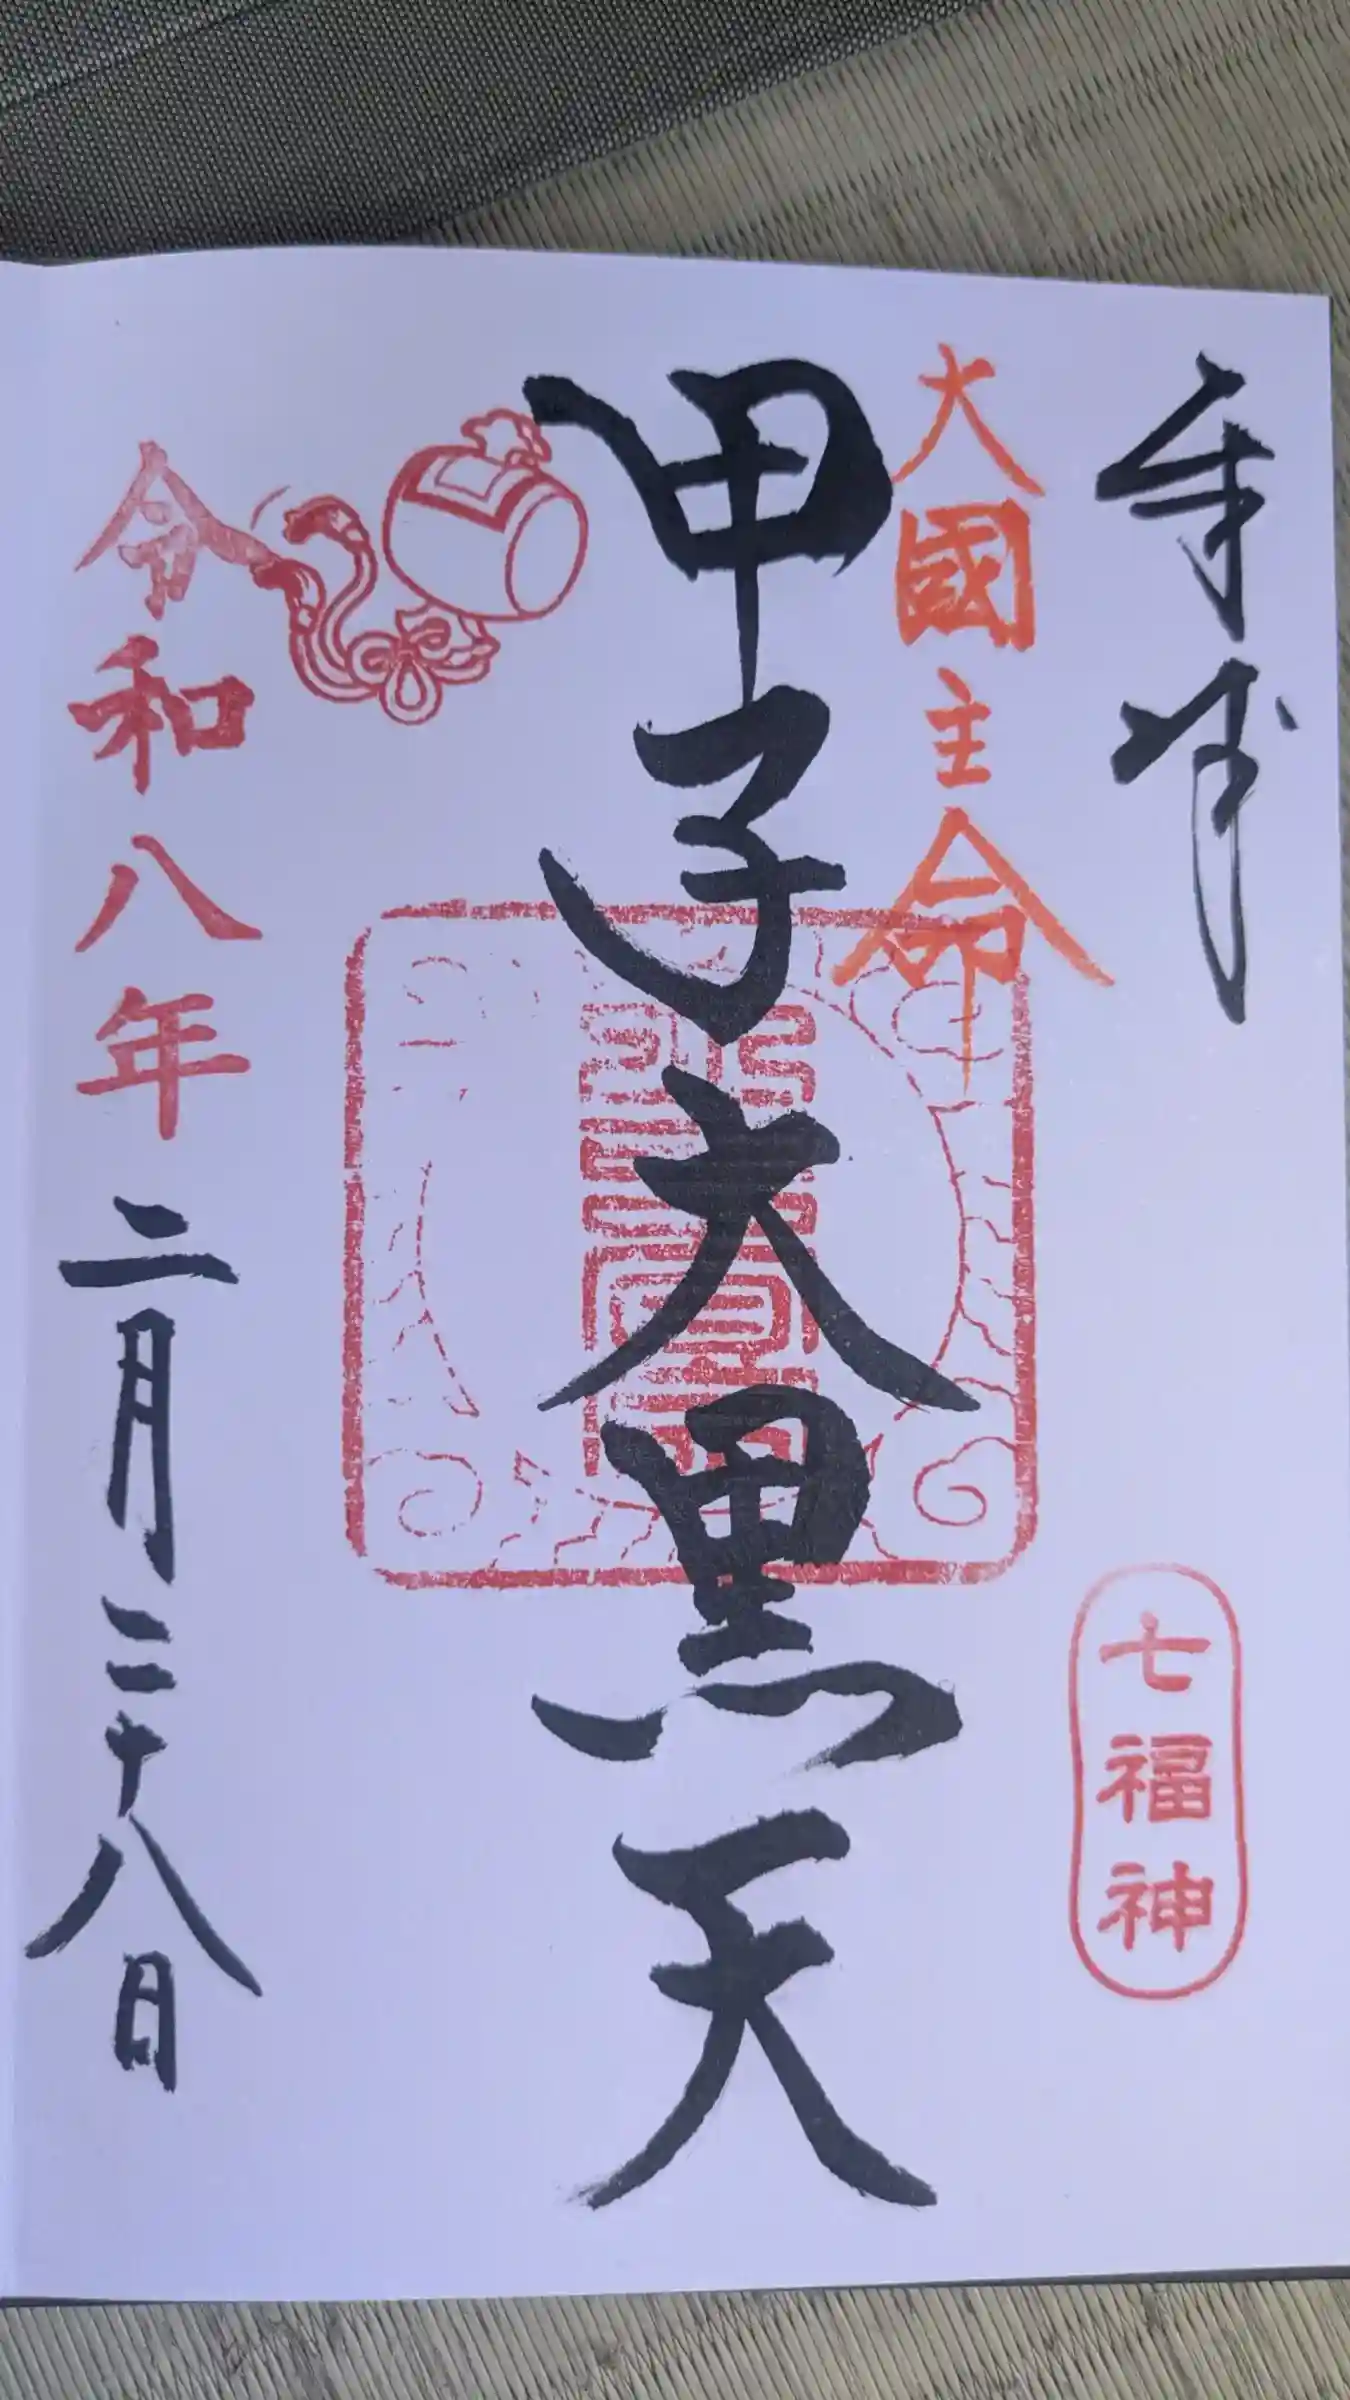 奉拝
七福神
大國主命
甲子大黒天
令和八年二月二十八日